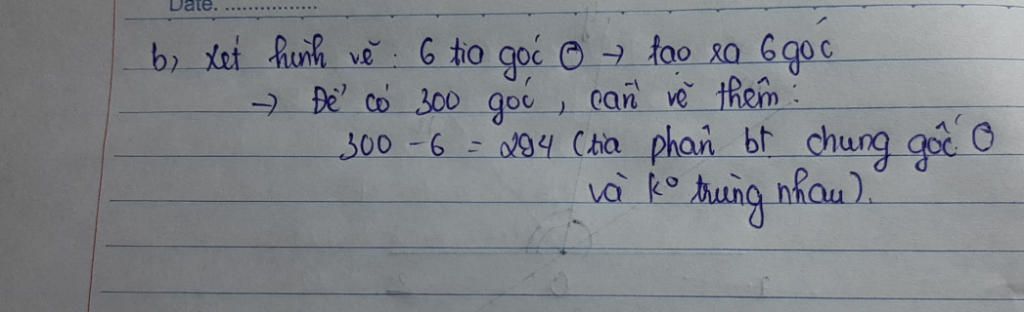 Date. ................
b, Xét hình vẽ : 6 tia gốc O → tạo ra 6 góc
→ Để có 300 góc, cần vẽ thêm :
300 - 6 = 294 (tia phân bt chung gốc O
và k° trùng nhau).